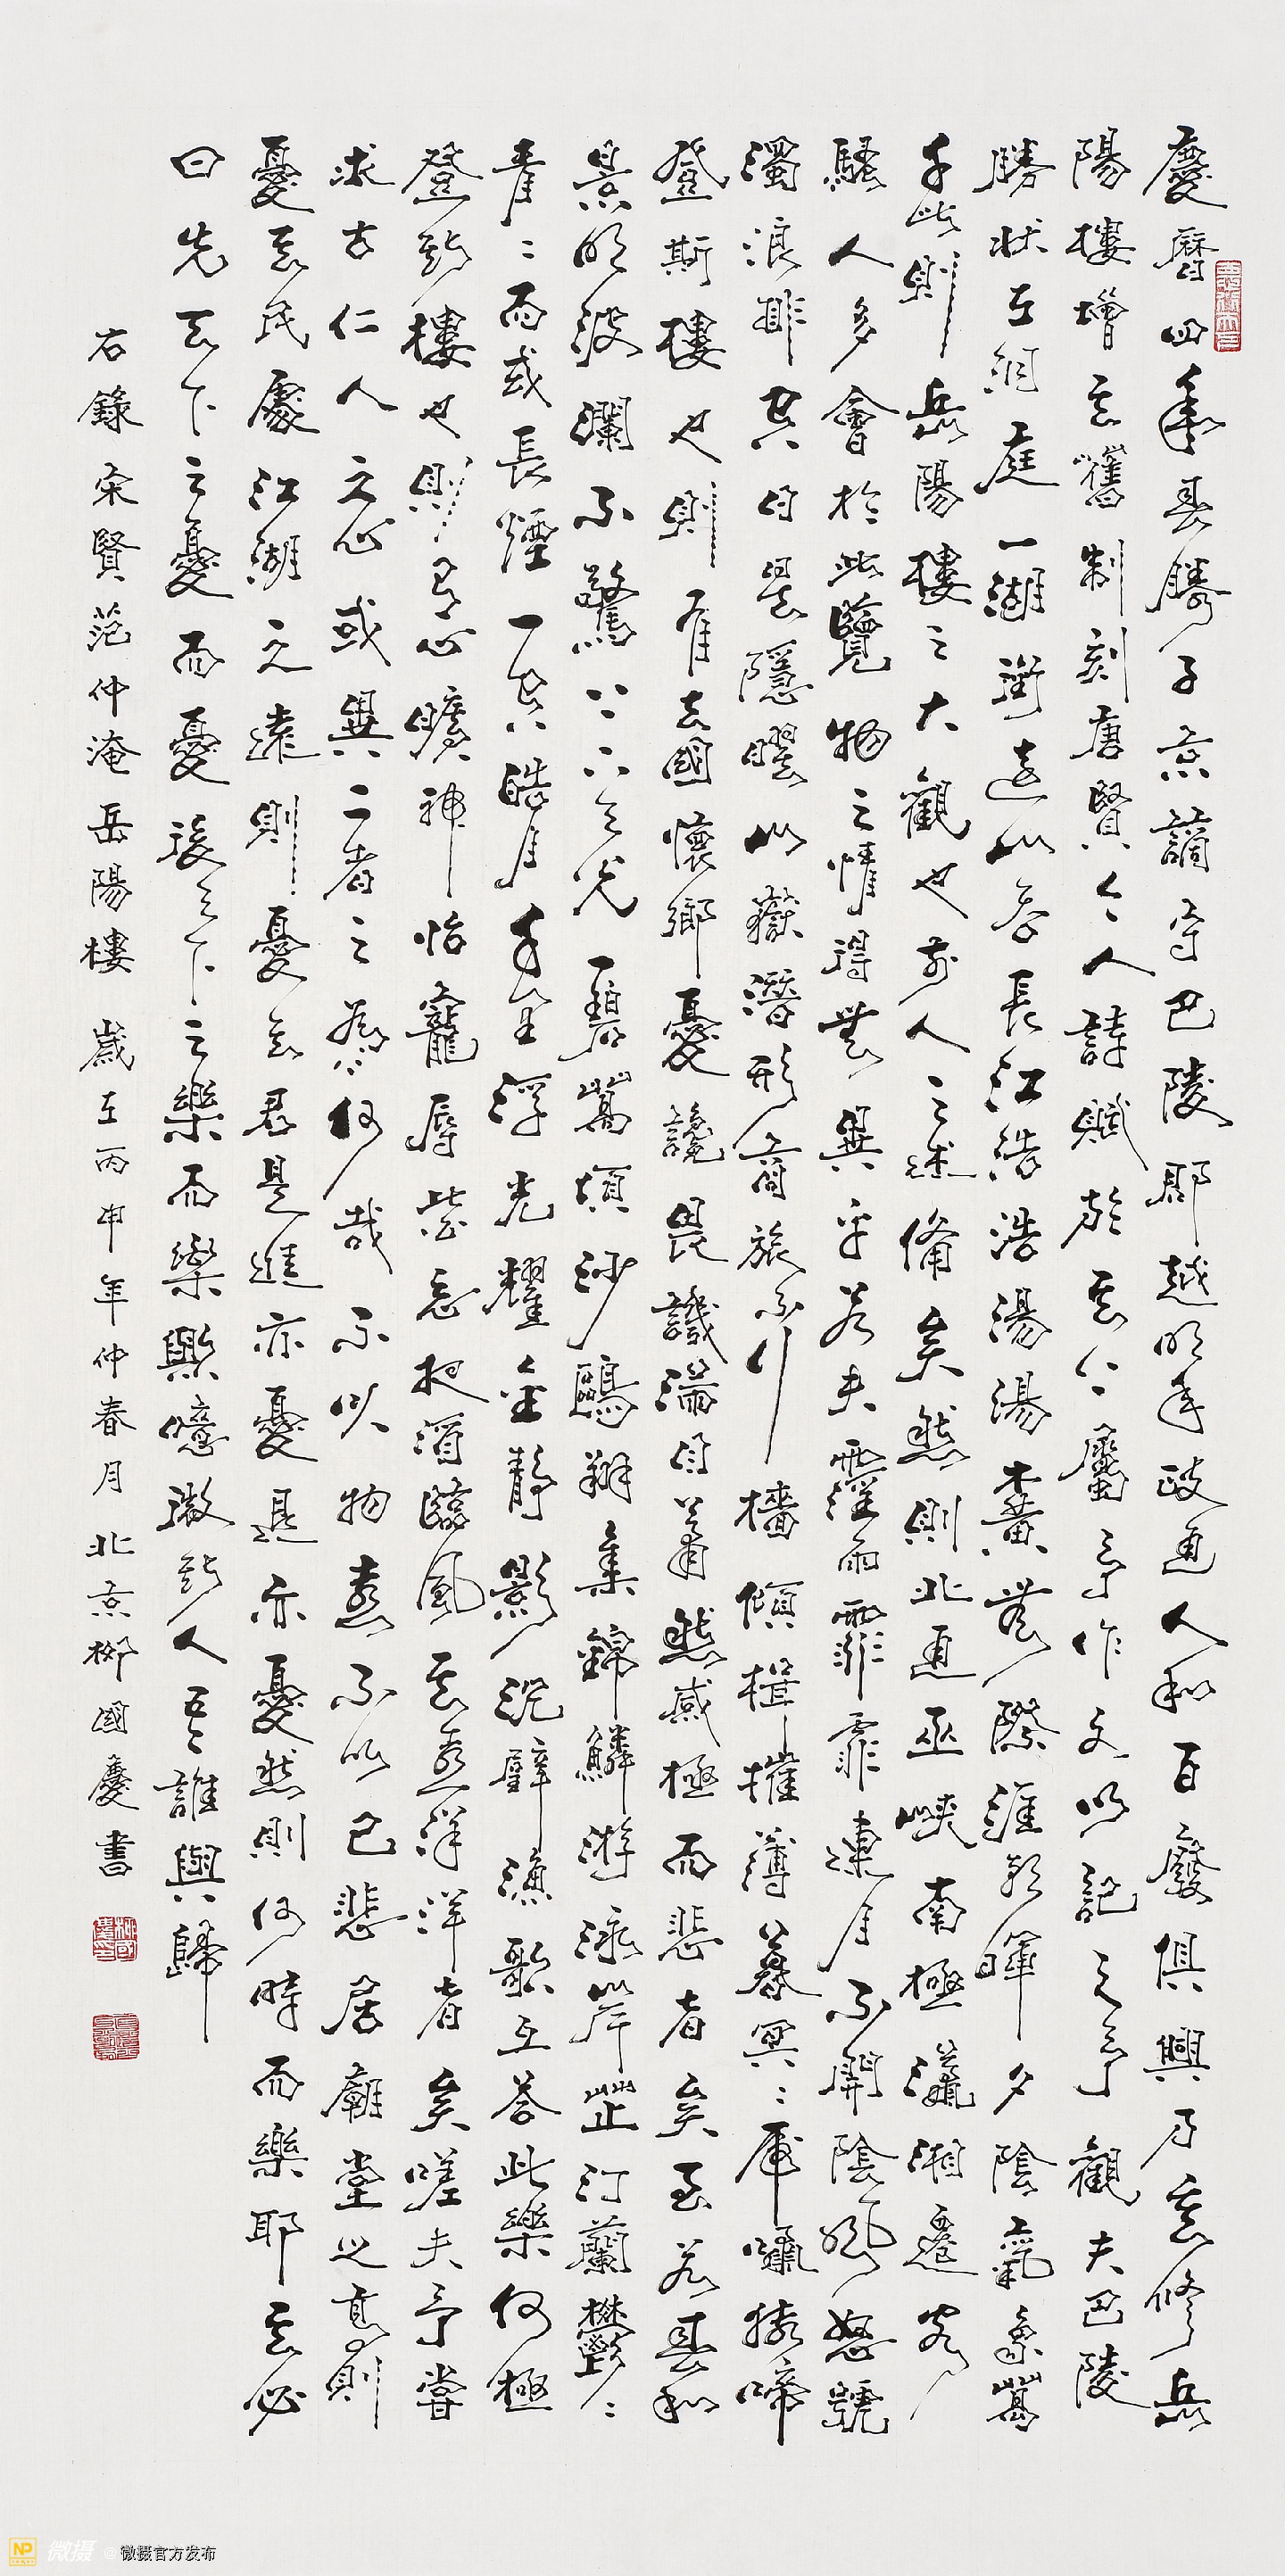 慶曆四年春滕子京謫守巴陵郡越明年政通人和百廢俱興乃重修岳
陽樓增其舊制刻唐賢今人詩賦於其上屬予作文以記之予觀夫巴陵
勝狀在洞庭一湖銜遠山吞長江浩浩湯湯橫無際涯朝暉夕陰氣象萬
千此則岳陽樓之大觀也前人之述備矣然則北通巫峽南極瀟湘遷客
騷人多會於此覽物之情得無異乎若夫霪雨霏霏連月不開陰風怒號
濁浪排空日星隱曜山嶽潛形商旅不行檣傾楫摧薄暮冥冥虎嘯猿啼
登斯樓也則有去國懷鄉憂讒畏譏滿目蕭然感極而悲者矣至若春和
景明波瀾不驚上下天光一碧萬頃沙鷗翔集錦鱗游泳岸芷汀蘭鬱鬱
青青而或長煙一空皓月千里浮光耀金靜影沉璧漁歌互答此樂何極
登斯樓也則有心曠神怡寵辱皆忘把酒臨風其喜洋洋者矣嗟夫予嘗
求古仁人之心或異二者之為何哉不以物喜不以己悲居廟堂之高則
憂其民處江湖之遠則憂其君是進亦憂退亦憂然則何時而樂耶其必
曰先天下之憂而憂後天下之樂而樂歟噫微斯人吾誰與歸
右錄宋賢范仲淹岳陽樓 歲在丙申年仲春月北京柳國慶書
微摄 @微摄官方发布